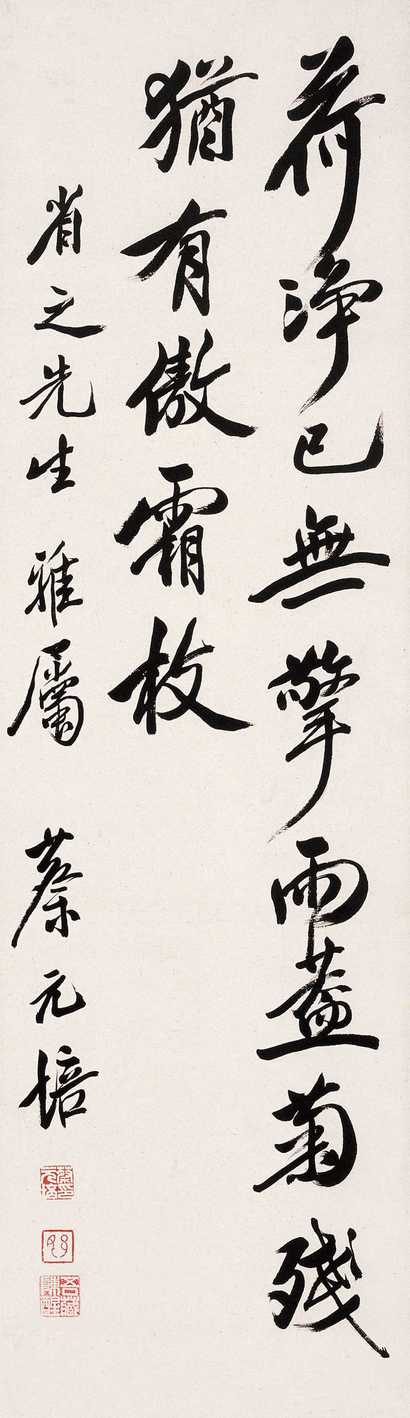 荷浄已無擎雨蓋菊殘
猶有傲霜枝
省之先生雅屬
蔡元培